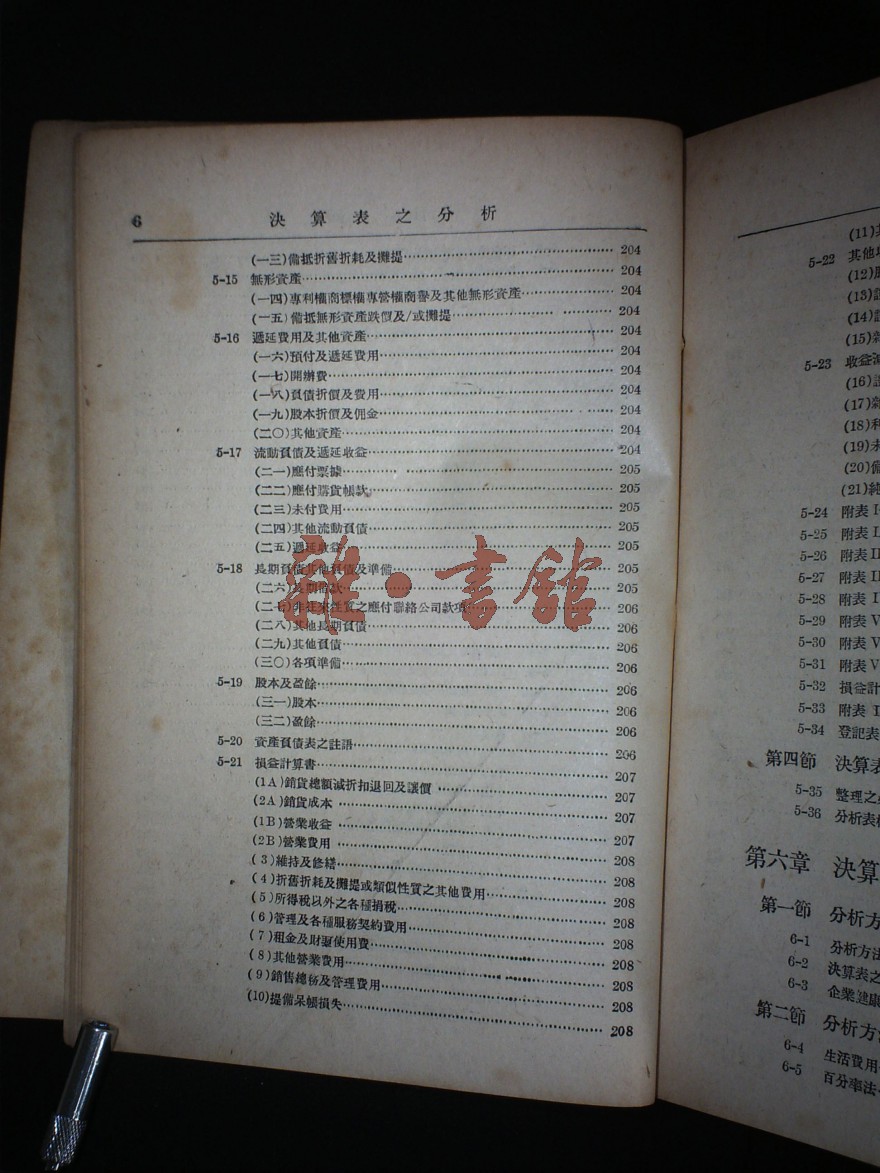 6 決算表之分析
(一三)備抵折舊折耗及攤提 204
5-15 無形資產 204
(一四)專利權商標權專營權商譽及其他無形資產 204
(一五)備抵無形資產跌價及/或攤提 204
5-16 遞延費用及其他資產 204
(一六)預付及遞延費用 204
(一七)開辦費 204
(一八)負債折價及費用 204
(一九)股本折價及佣金 204
(二〇)其他資產 204
5-17 流動負債及遞延收益 204
(二一)應付票據 205
(二二)應付購貨帳款 205
(二三)未付費用 205
(二四)其他流動負債 205
(二五)遞延收益 205
5-18 長期負債其他負債及準備 205
(二六)長期借款 205
(二七)非往來性質之應付聯絡公司款項 206
(二八)其他長期負債 206
(二九)其他負債 206
(三〇)各項準備 206
5-19 股本及盈餘 206
(三一)股本 206
(三二)盈餘 206
5-20 資產負債表之註語 206
5-21 損益計算書 207
(1A)銷貨總額減折扣退回及讓價 207
(2A)銷貨成本 207
(1B)營業收益 207
(2B)營業費用 208
(3)維持及修繕 208
(4)折舊折耗及攤提或類似性質之其他費用 208
(5)所得稅以外之各種捐稅 208
(6)管理及各種服務契約費用 208
(7)租金及財產使用費 208
(8)其他營業費用 208
(9)銷售總務及管理費用 208
(10)提備呆帳損失 208
雜·書館
(11)其
5-22 其他
(12)
(13)
(14)
(15)
5-23 收益
(16)
(17)
(18)利
(19)未
(20)備
(21)純
5-24 附表 I
5-25 附表
5-26 附表
5-27 附表
5-28 附表
5-29 附表 V
5-30 附表 V
5-31 附表 V
5-32 損益計
5-33 附表
5-34 登記表
第四節 決算表
5-35 整理之
5-36 分析表
第六章 決算
第一節 分析方
6-1 分析方法
6-2 決算表之
6-3 企業健康
第二節 分析方
6-4 生活費用
6-5 百分率法